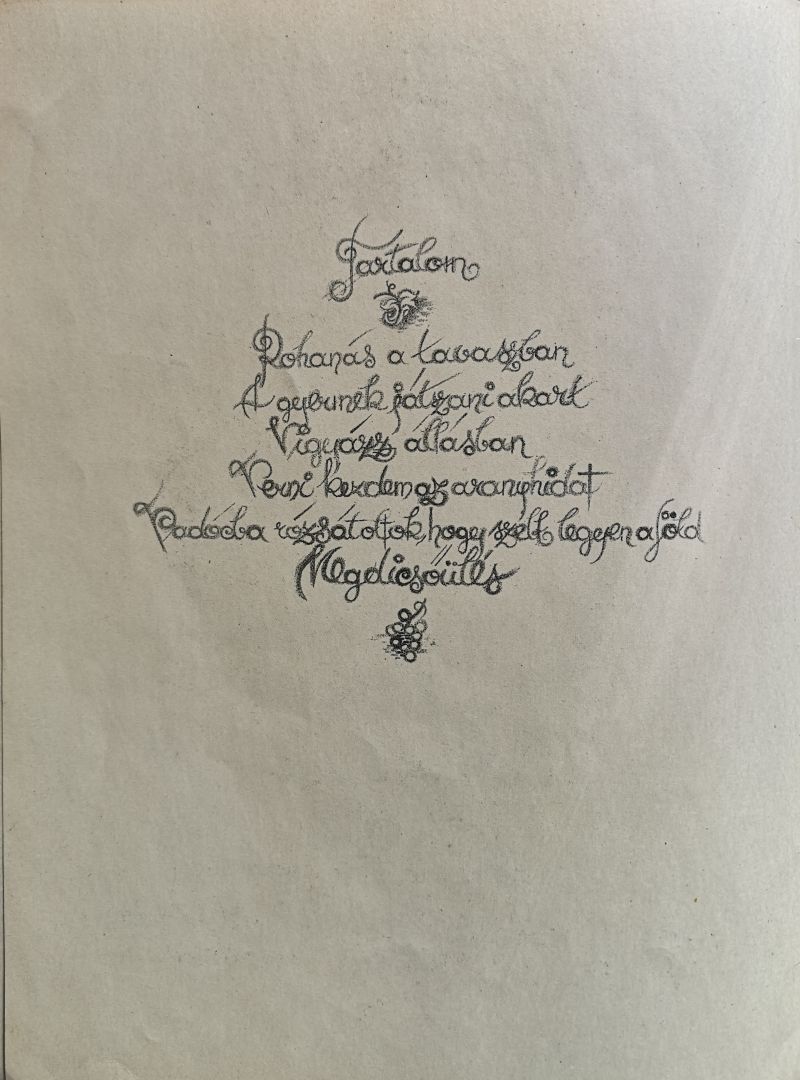 Tartalom
Rohanás a tavaszban
A gyermek játszani akart
Vigyázz állásban
Verni kezdem az aranyhidat
Vadócba rózsát oltok, hogy szebb legyen a föld
Megdicsőülés